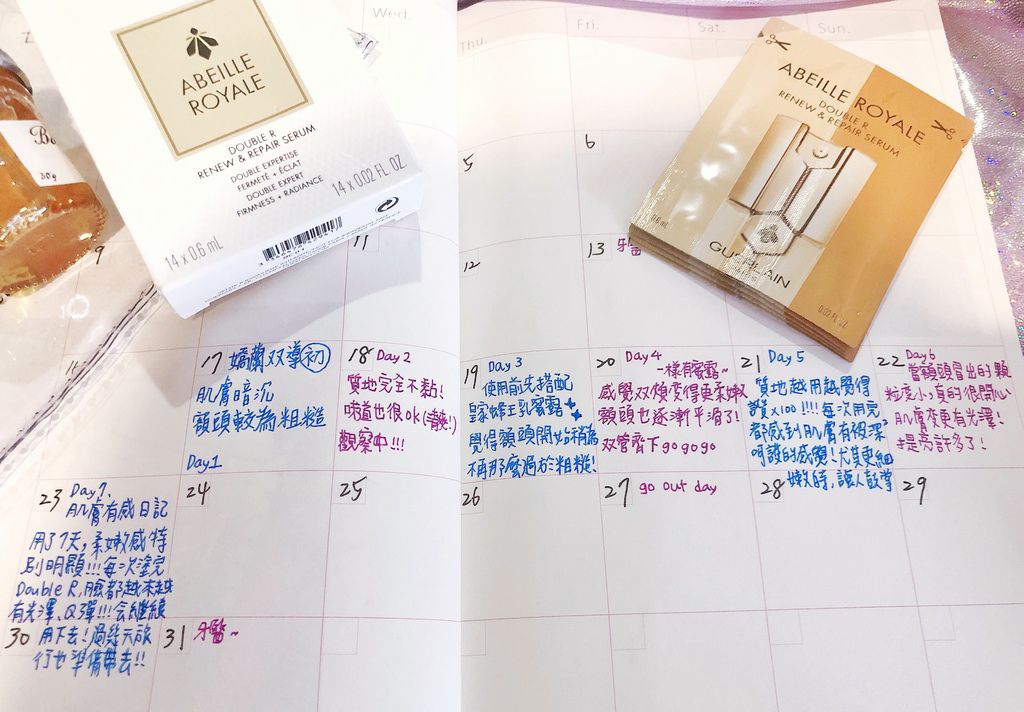 Wed.
Thu.
Fri.
Sat.
Sun.
ABEILLE
ROYALE
DOUBLE R
RENEW & REPAIR SERUM
DOUBLE EXPERTISE
FERMETÉ + ÉCLAT
DOUBLE EXPERT
FIRMNESS + RADIANCE
14 x 0.6 mL
14 x 0.02 FL. OZ.
30g
ABEILLE ROYALE
DOUBLE R
RENEW & REPAIR SERUM
GUERLAIN
0.6 mL
0.02 FL. OZ.
5
6
9
11
12
13 牙醫
17 嬌蘭双導初
肌膚暗沉
額頭較為粗糙
Day1
18 Day 2
質地完全不黏!
味道也很ok(清爽!)
觀察中!!!
19 Day 3
使用前先搭配
皇家蜂王乳蜜露
覺得額頭開始稍為
不再那麼過於粗糙!
20 Day 4
一樣配蜜露~
感覺双頰變得更柔嫩
額頭也逐漸平滑了!
双管齊下gogogo
21 Day 5
質地越用越覺得
讚x100!!!!每次用完
都感到肌膚有被深深
呵護的感覺!尤其更細
嫩時,讓人鼓掌
22 Day 6
當額頭冒出的顆
粒度小,真的很開心
肌膚變更有光澤!
提亮許多了!
23 Day 7.
肌膚有感日記
用了7天,柔嫩感特
別明顯!!!每次塗完
Double R,臉都越來越
有光澤、Q彈!!!会繼續
用下去!過幾天旅
行也準備帶去!!
24
25
26
27 go out day
28
29
30
31 牙醫~